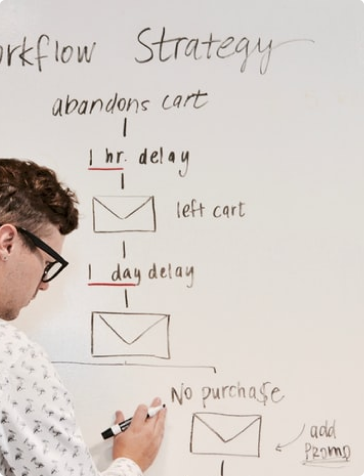 orkflow Strategy
abandons cart
1 hr. delay
left cart
1 day delay
No purchase
add
promo